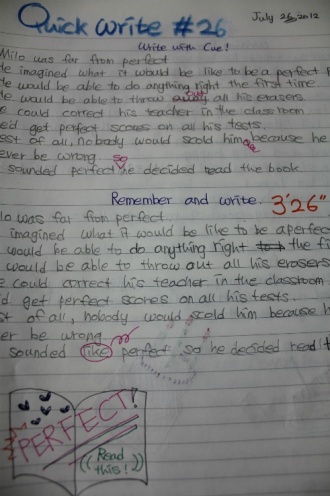 Quick write #26
July 26, 2012
Write with Cue!
Milo was far from perfect
He imagined what it would be like to be a perfect
He would be able to do anything right the first time
He would be able to throw out all his erasers.
e could correct his teacher in the classroom
ed get perfect scores on all his tests.
est of all, nobody would scold him because he
ever be wrong
so
sounded perfect he decided read the book.
Remember and write. 3'26"
lo was far from perfect.
imagined what it would be like to be a perfec
would he able to do anything right the fi
would be able to throw out all his erasers
e could correct his teacher in the classroom
d get perfect scores on all his tests.
st of all, nobody would scold him because h
er be wrong
sounded like perfect so he decided read t
PERFECT!
((Read this!))